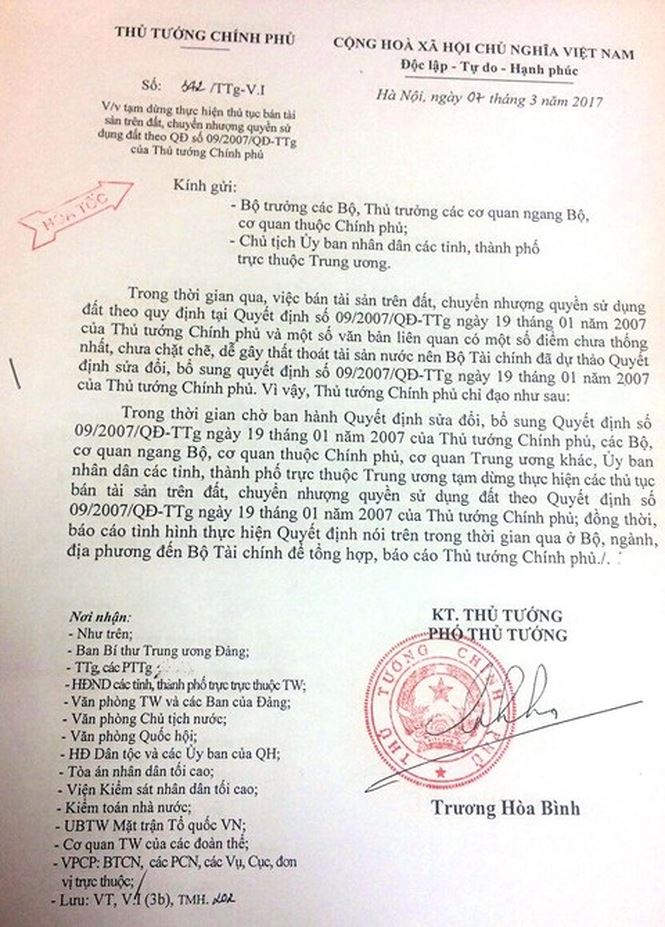 THỦ TƯỚNG CHÍNH PHỦ
CỘNG HOÀ XÃ HỘI CHỦ NGHĨA VIỆT NAM
Độc lập - Tự do - Hạnh phúc
Số: 342/TTg-V.I
Hà Nội, ngày 07 tháng 3 năm 2017
V/v tạm dừng thực hiện thủ tục bán tài
sản trên đất, chuyển nhượng quyền sử
dụng đất theo QĐ số 09/2007/QĐ-TTg
của Thủ tướng Chính phủ
HOẢ TỐC
Kính gửi:
- Bộ trưởng các Bộ, Thủ trưởng các cơ quan ngang Bộ,
cơ quan thuộc Chính phủ;
- Chủ tịch Ủy ban nhân dân các tỉnh, thành phố
trực thuộc Trung ương.
Trong thời gian qua, việc bán tài sản trên đất, chuyển nhượng quyền sử dụng
đất theo quy định tại Quyết định số 09/2007/QĐ-TTg ngày 19 tháng 01 năm 2007
của Thủ tướng Chính phủ và một số văn bản liên quan có một số điểm chưa thống
nhất, chưa chặt chẽ, dễ gây thất thoát tài sản nước nên Bộ Tài chính đã dự thảo Quyết
định sửa đổi, bổ sung quyết định số 09/2007/QĐ-TTg ngày 19 tháng 01 năm 2007
của Thủ tướng Chính phủ. Vì vậy, Thủ tướng Chính phủ chỉ đạo như sau:
Trong thời gian chờ ban hành Quyết định sửa đổi, bổ sung Quyết định số
09/2007/QĐ-TTg ngày 19 tháng 01 năm 2007 của Thủ tướng Chính phủ, các Bộ,
cơ quan ngang Bộ, cơ quan thuộc Chính phủ, cơ quan Trung ương khác, Ủy ban
nhân dân các tỉnh, thành phố trực thuộc Trung ương tạm dừng thực hiện các thủ tục
bán tài sản trên đất, chuyển nhượng quyền sử dụng đất theo Quyết định số
09/2007/QĐ-TTg ngày 19 tháng 01 năm 2007 của Thủ tướng Chính phủ; đồng thời,
báo cáo tình hình thực hiện Quyết định nói trên trong thời gian qua ở Bộ, ngành,
địa phương đến Bộ Tài chính để tổng hợp, báo cáo Thủ tướng Chính phủ./.
Nơi nhận:
- Như trên;
- Ban Bí thư Trung ương Đảng;
- TTg, các PTTg
- HĐND các tỉnh, thành phố trực trực thuộc TW;
- Văn phòng TW và các Ban của Đảng;
- Văn phòng Chủ tịch nước;
- Văn phòng Quốc hội;
- HĐ Dân tộc và các Ủy ban của QH;
- Tòa án nhân dân tối cao;
- Viện Kiểm sát nhân dân tối cao;
- Kiểm toán nhà nước;
- UBTW Mặt trận Tổ quốc VN;
- Cơ quan TW của các đoàn thể;
- VPCP: BTCN, các PCN, các Vụ, Cục, đơn
vị trực thuộc;
- Lưu: VT, V.I (3b), TMH.
KT. THỦ TƯỚNG
PHÓ THỦ TƯỚNG
THỦ TƯỚNG CHÍNH PHỦ
Trương Hòa Bình